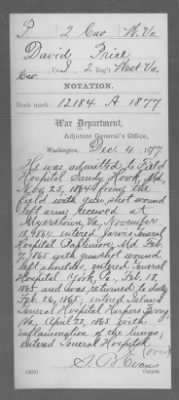 P 2 Cav W. Va.
David Price
Cav. Co. I, 2 Reg't West Va.
NOTATION.
Book mark: 12184 A 1877
War Department,
Adjutant General's Office,
Washington, Dec. 4, 1877
He was admitted to Field
Hospital Sandy Hook, Md.
Nov 25, 1864 from the
field with gun shot wound
left arm received at
Va. November
1864, entered Jarvis General
Hospital Baltimore, Md. Feb.
7, 1865 with gunshot wound
left shoulder, entered General
Hospital York Pa. Feb. 12
1865 and was returned to duty
Feb. 26, 1865; entered Island
General Hospital Harpers Ferry
Va. April 23, 1865 with
inflammation of the lungs;
entered General Hospital
(over)
Copyist.